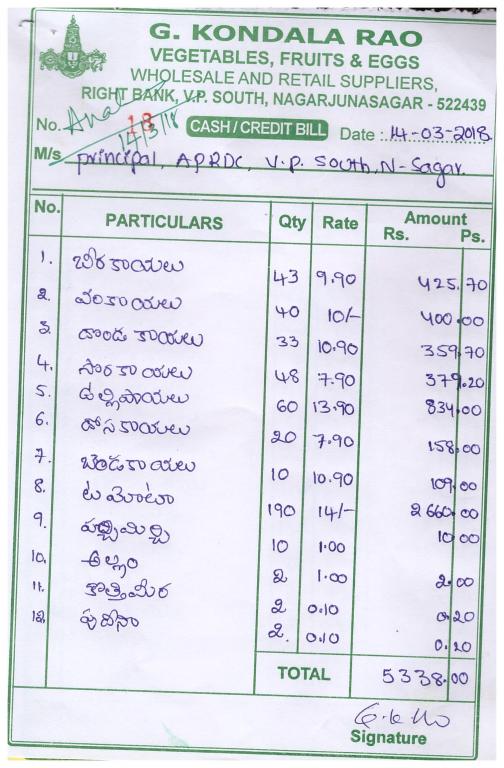 G. KONDALA RAO
VEGETABLES, FRUITS & EGGS
WHOLESALE AND RETAIL SUPPLIERS,
RIGHT BANK, V.P. SOUTH, NAGARJUNASAGAR - 522439
No. 13 CASH / CREDIT BILL Date : 14-03-2018
14/3/18
M/s principal, APRDC, V.P. South, N-Sagar.
No. PARTICULARS Qty Rate Amount
Rs. Ps.
1. బీరకాయలు 43 9.90 425.70
2. వంకాయలు 40 10/- 400.00
3. దొండకాయలు 33 10.90 359.70
4. సొరకాయలు 48 7.90 379.20
5. ఉల్లిపాయలు 60 13.90 834.00
6. దోసకాయలు 20 7.90 158.00
7. బెండకాయలు 10 10.90 109.00
8. టమోటా 190 14/- 2660.00
9. పచ్చిమిర్చి 10 1.00 10.00
10. అల్లం 2 1.00 2.00
11. కొత్తిమీర 2 0.10 0.20
12. పుదీనా 2. 0.10 0.20
TOTAL 5338.00
Signature